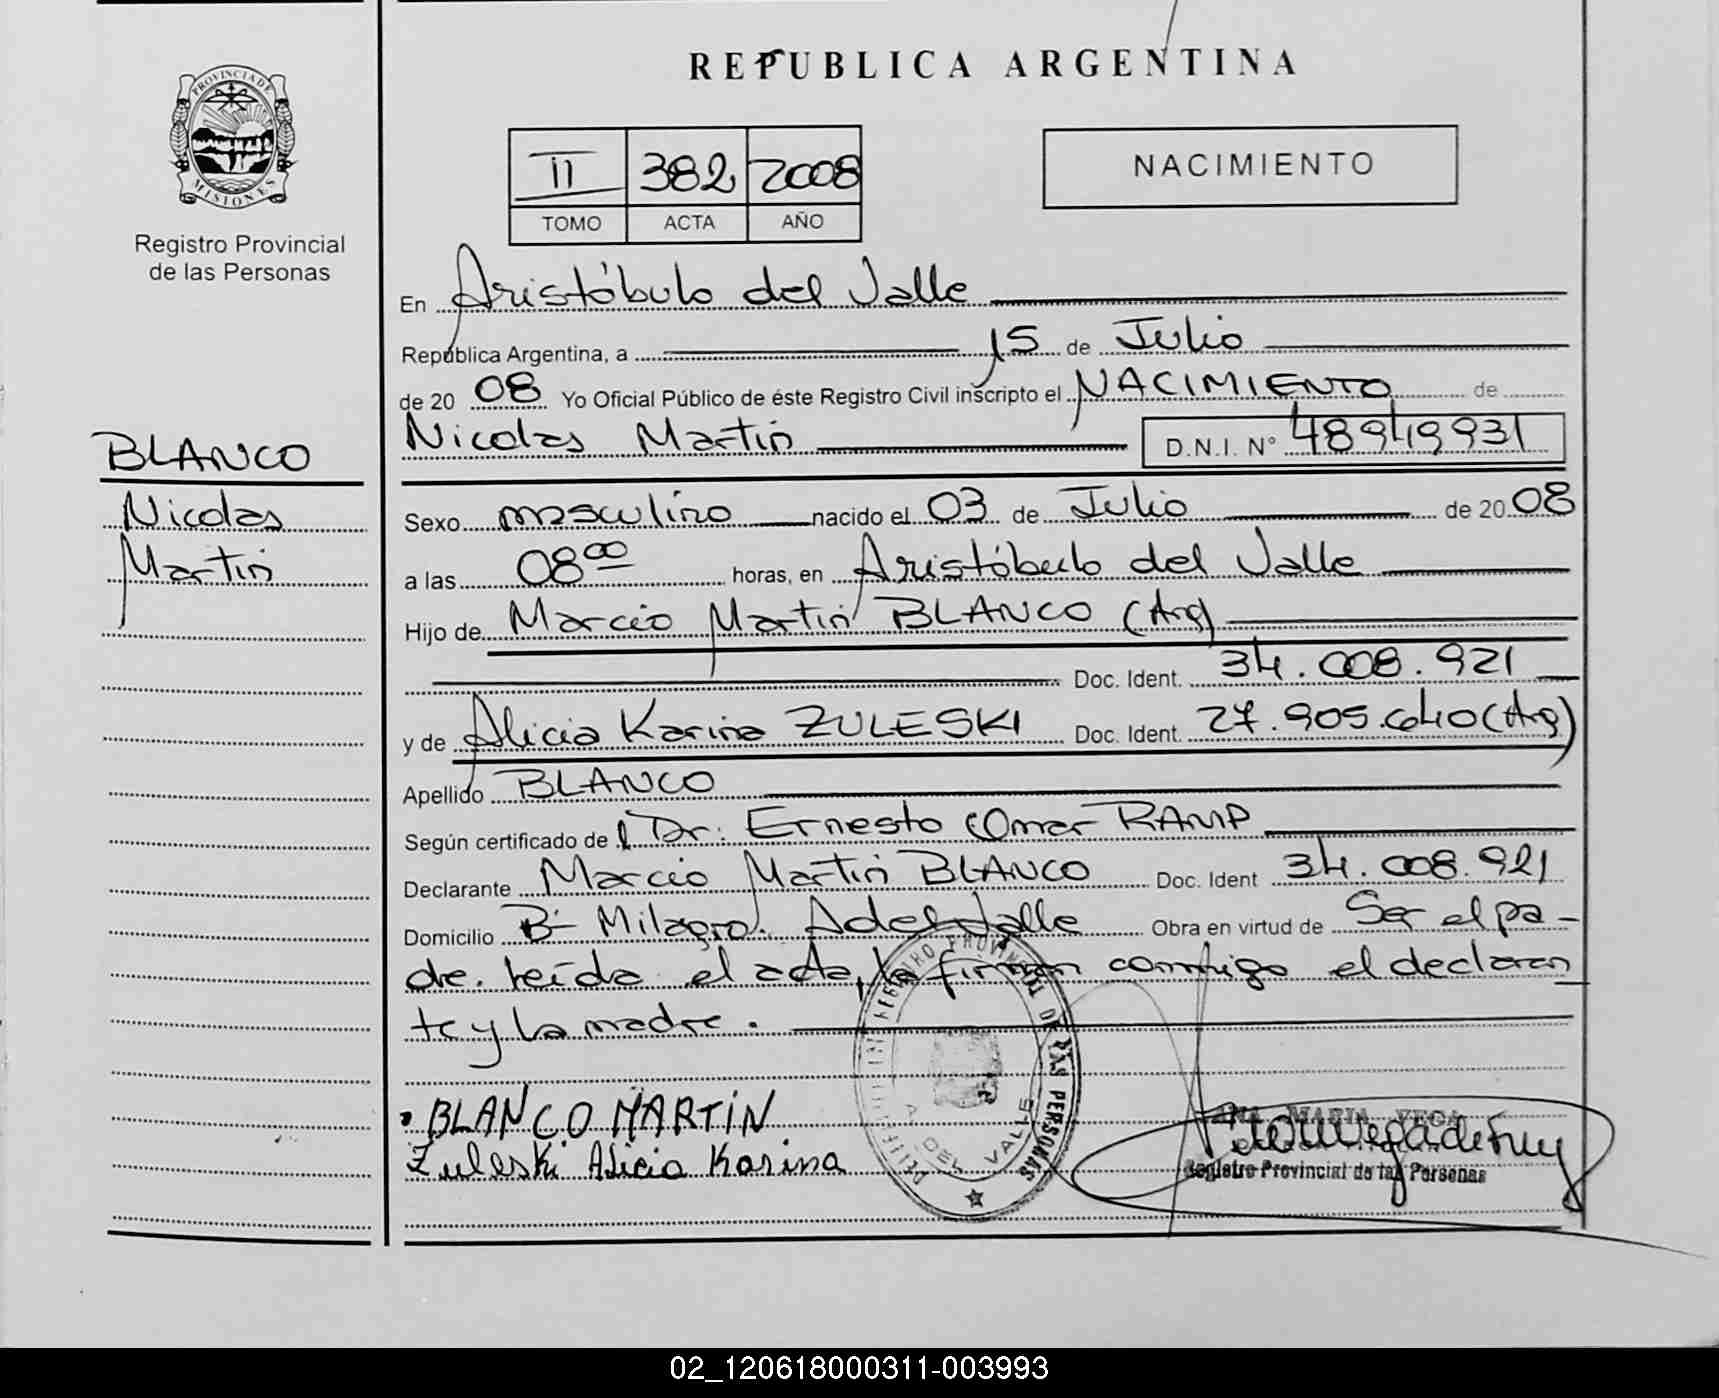 PROVINCIA DE
MISIONES
Registro Provincial
de las Personas
BLANCO
Nicolas
Martin
REPUBLICA ARGENTINA
II 382 2008
TOMO ACTA AÑO
NACIMIENTO
En Aristóbulo del Valle
República Argentina, a 15 de Julio
de 20 08 Yo Oficial Público de éste Registro Civil inscripto el NACIMIENTO de
Nicolas Martin D.N.I. N° 48949931
Sexo masculino nacido el 03 de Julio de 20 08
a las 08 00 horas, en Aristóbulo del Valle
Hijo de Marcio Martin BLANCO (Arg)
Doc. Ident. 34.008.921
y de Alicia Karina ZULESKI Doc. Ident. 27.905.640 (Arg)
Apellido BLANCO
Según certificado de Dr. Ernesto Omar RAMP
Declarante Marcio Martin BLANCO Doc. Ident 34.008.921
Domicilio B- Milagro. A del Valle Obra en virtud de Ser el pa-
dre. Leída el acta, la firman conmigo el declaran
te y la madre.
BLANCO MARTIN
Zuleski Alicia Karina
REGISTRO PROVINCIAL DE LAS PERSONAS
A. DEL VALLE
ANA MARIA VEGA
Registro Provincial de las Personas
02_120618000311-003993